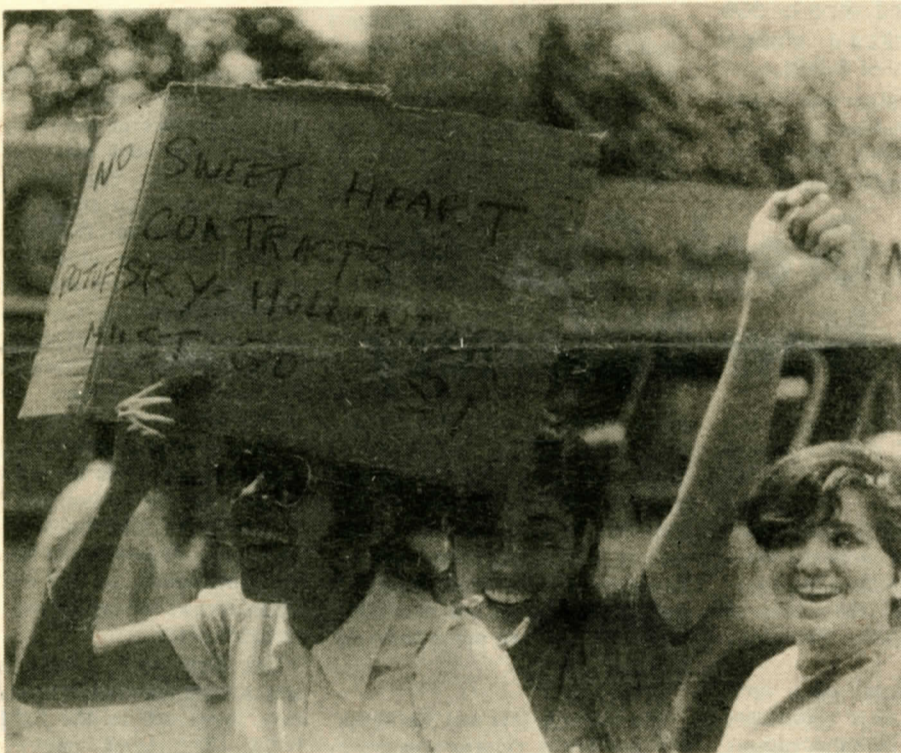 NO SWEET HEART
CONTRACTS
POTOFSKY- HOLLANDER
MUST GO